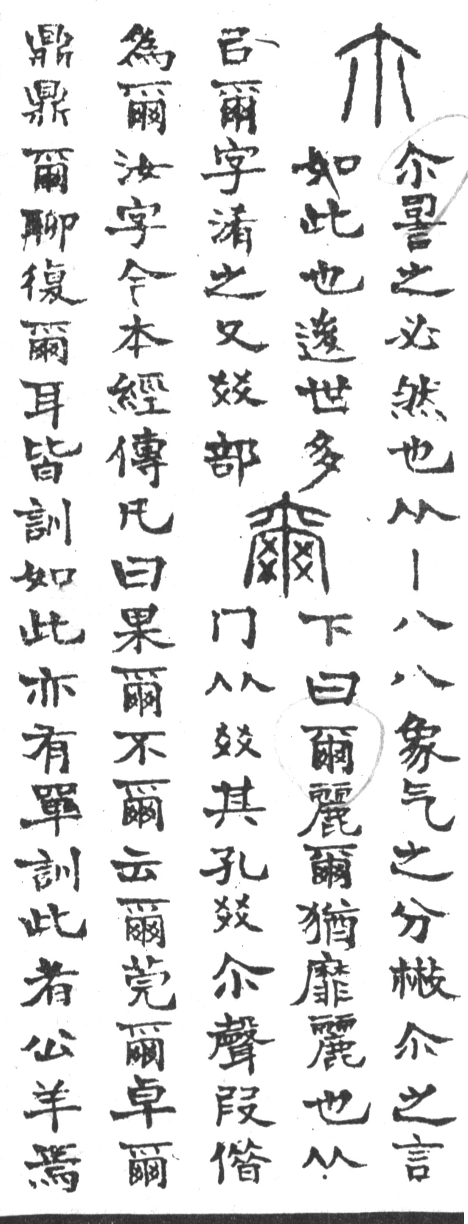 尒
尒䛐之必然也从丨八八象气之分㪔尒之言
如此也後世多
㠯爾字淆之又㸚部
爾
下曰爾麗爾猶靡麗也从
冂从㸚其孔㸚尒聲叚偕
為爾汝字今本經傳凡曰果爾不爾云爾莞爾卓爾
鼎鼎爾聊復爾耳皆訓如此亦有單訓此者公羊焉